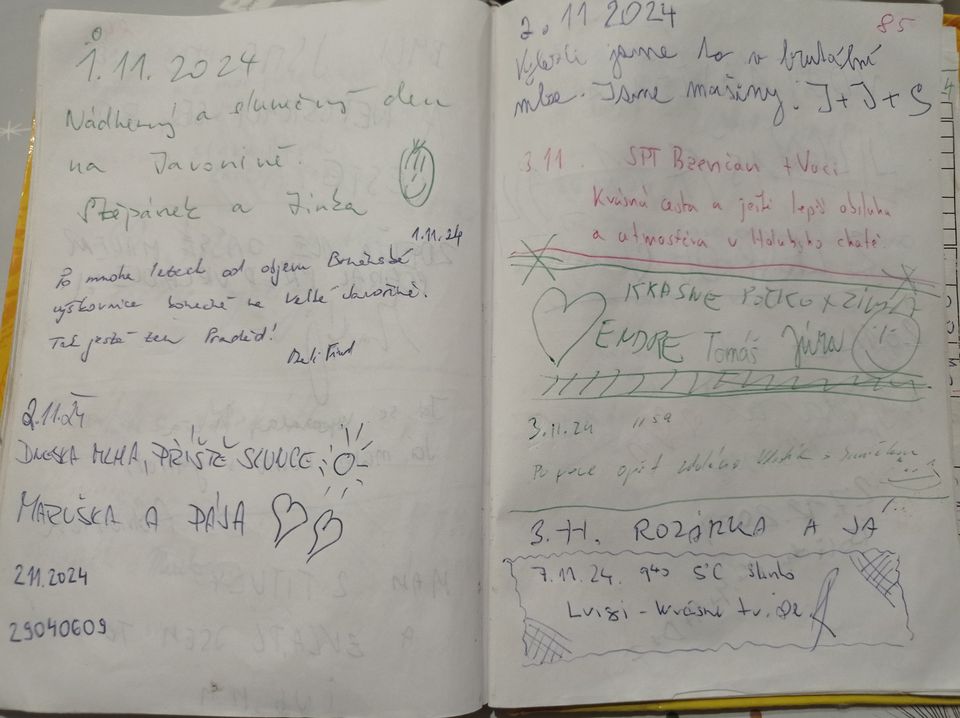 1.11.2024
Nádherný a slunečný den
na Javorině.
Štěpánek a Jinka
1.11.24
Po mnoha letech od objevu Brněnské
výškovnice konečně na Velké Javořině.
Tak ještě ten Praděd!
2.11.24
DNESKA MLHA, PŘÍŠTĚ SLUNCE
MARUŠKA A PÁJA
2.11.2024
29040609
85
2.11 2024
Vylezli jsme to v brutální
mlze. Jsme mašiny. J+J+S
3.11. SPT Bzenčan + Voci
Krásná cesta a ještě lepší obsluha
a atmosféra v Holubyho chatě.
KRÁSNE
ENDRE Tomáš Júra
3.11.24 11 59
Po prve opäť
3.11. ROZÁRKA A JÁ
7.11.24. 9 40 5°C
Luigi - krásně